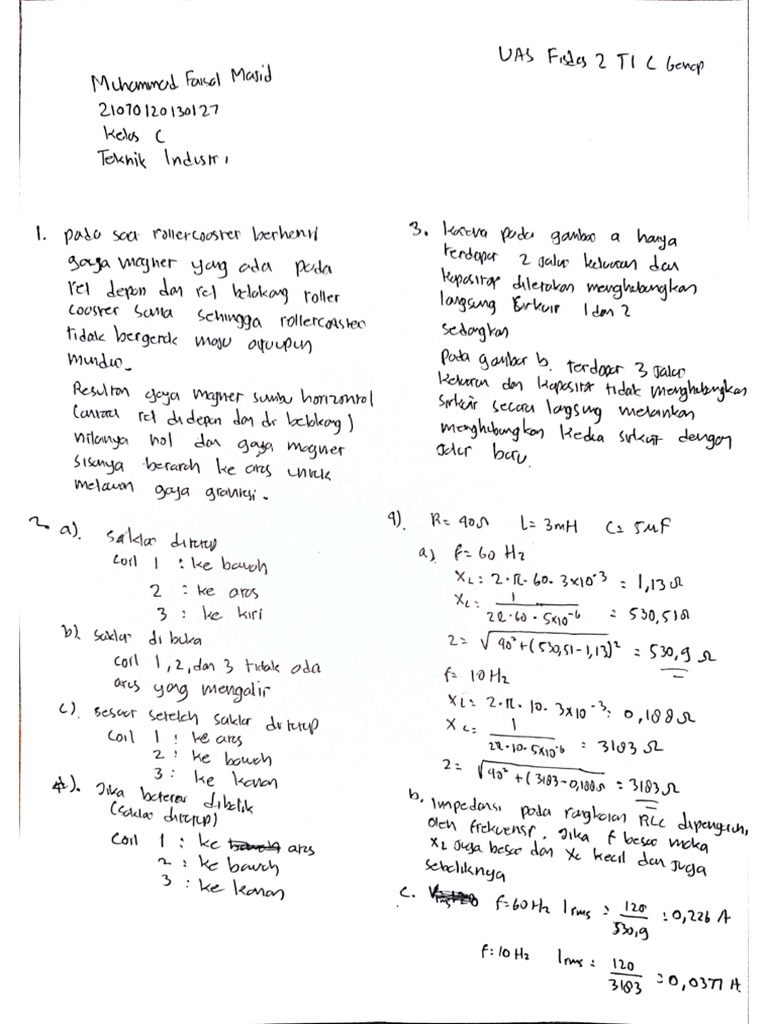 UAS Fisdas 2 TI C Genap
Muhammad Faisal Masid
21070120130127
Kelas C
Teknik Industri
1. pada saat rollercoaster berhenti
gaya magnet yang ada pada
rel depan dan rel belakang roller
coaster sama sehingga rollercoaster
tidak bergerak maju ataupun
mundur.
Resultan gaya magnet sumbu horizontal
(antara rel di depan dan di belakang)
nilainya nol dan gaya magnet
sisanya berarah ke atas untuk
melawan gaya gravitasi.
2. a). Saklar ditutup
coil 1 : ke bawah
2 : ke atas
3 : ke kiri
b). saklar dibuka
coil 1, 2, dan 3 tidak ada
arus yang mengalir
c). sesaat setelah saklar ditutup
coil 1 : ke atas
2 : ke bawah
3 : ke kanan
d). Jika baterai dibalik
(saklar ditutup)
coil 1 : ke atas
2 : ke bawah
3 : ke kanan
3. karena pada gambar a hanya
terdapat 2 jalur keluaran dan
kapasitor diletakan menghubungkan
langsung sirkuit 1 dan 2
sedangkan
pada gambar b. terdapat 3 jalur
keluaran dan kapasitor tidak menghubungkan
sirkuit secara langsung melankan
menghubungkan kedua sirkuit dengan
jalur baru.
4). R = 90Ω L = 3mH C = 5μF
a) f = 60 Hz
XL = 2·π·60·3×10⁻³ = 1,13 Ω
Xc = 1/(2π·60·5×10⁻⁶) = 530,51Ω
Z = √(90² + (530,51 - 1,13)²) = 530,9 Ω
f = 10 Hz
XL = 2·π·10·3×10⁻³ = 0,188 Ω
Xc = 1/(2π·10·5×10⁻⁶) = 3183 Ω
Z = √(90² + (3183 - 0,188Ω = 3183 Ω
b. Impedansi pada rangkaian RLC dipengaruhi
oleh frekuensi. Jika f besar maka
XL juga besar dan Xc kecil dan juga
sebaliknya
c. f = 60 Hz Irms = 120/530,9 = 0,226 A
f = 10 Hz Irms = 120/3183 = 0,0377 A